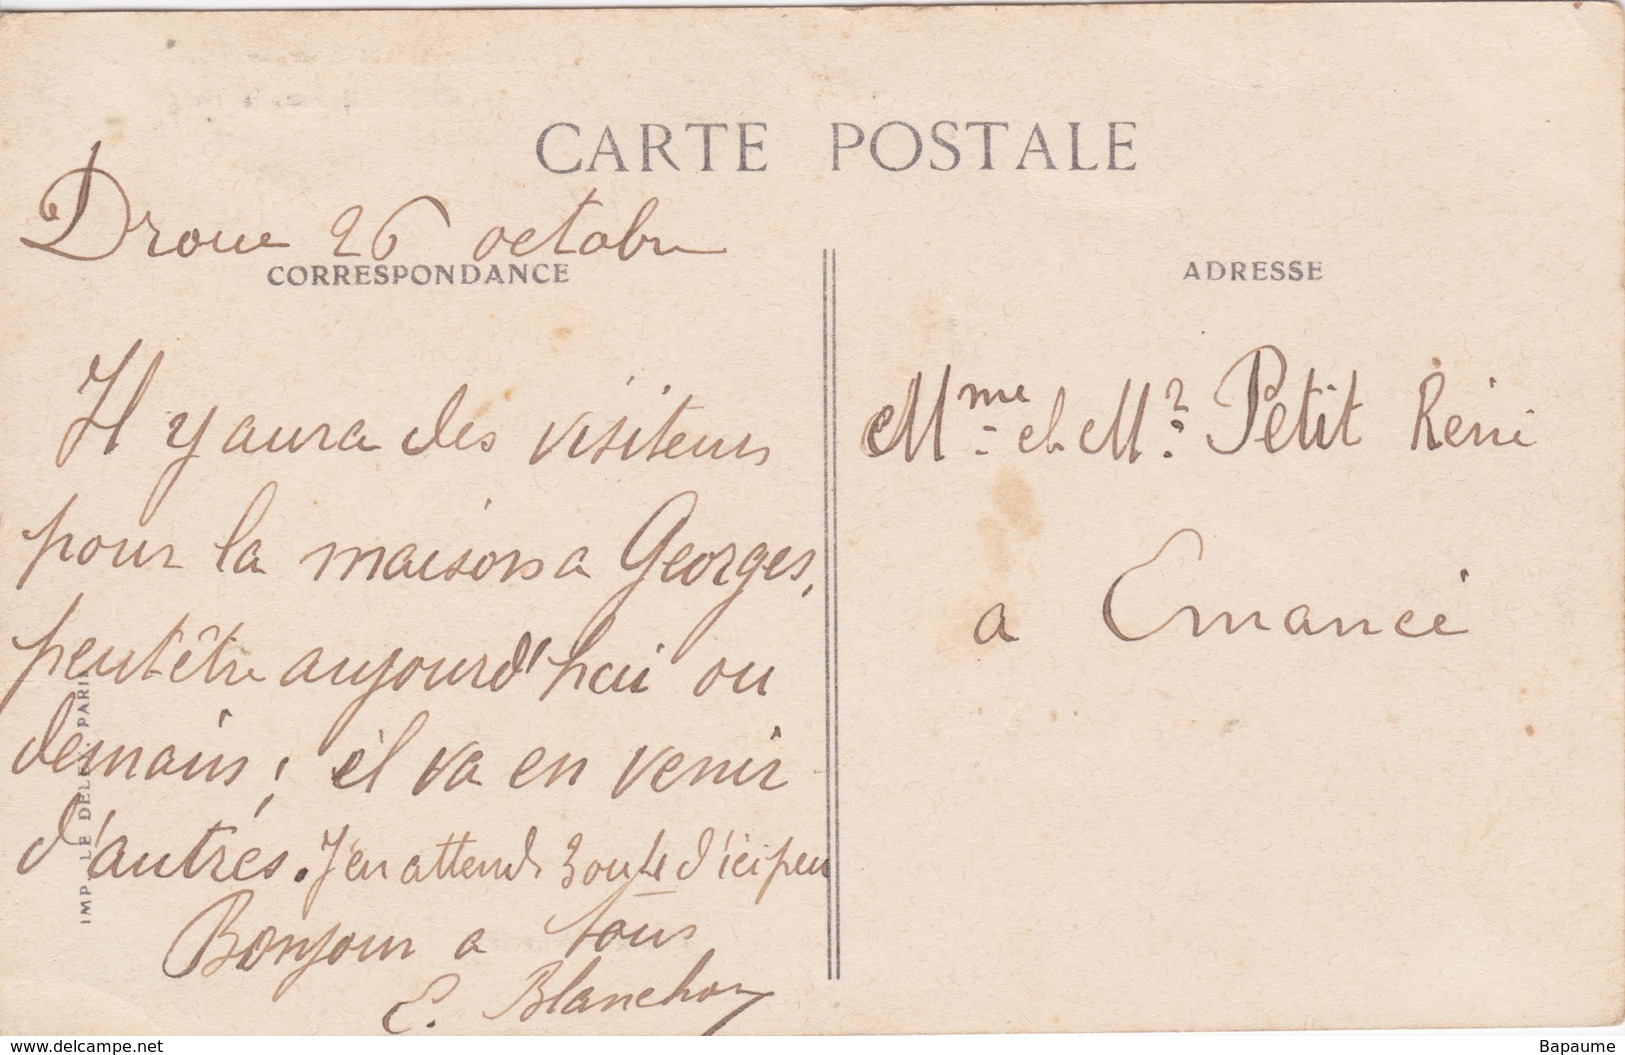 CARTE POSTALE
Droue 26 octobre
CORRESPONDANCE
Il y aura des visiteurs
pour la maison a Georges,
peut être aujourd'hui ou
demain; il va en venir
d'autres. J'en attends 3 ou 4 d'ici peu
Bonjour a tous
E. Blanchon
IMP. LE DELEY, PARIS
ADRESSE
Mme et Mr Petit René
a Emancé
www.delcampe.net
Bapaume